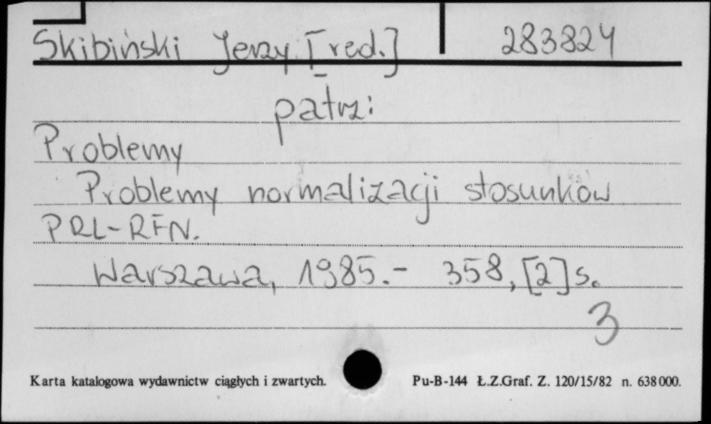 Skibiński Jerzy [red.] 283824
patrz:
Problemy
Problemy normalizacji stosunków
PRL-RFN.
Warszawa, 1985.- 358, [2] s.
3
Karta katalogowa wydawnictw ciągłych i zwartych. Pu-B-144 Ł.Z.Graf. Z. 120/15/82 n. 638000.